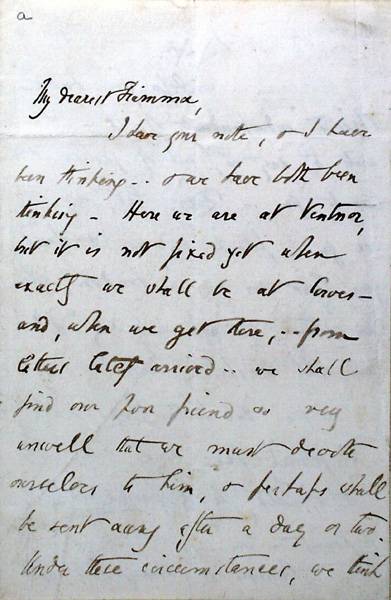 a
My dearest Fiamma,
I have your note, & I have
been thinking.. & we have both been
thinking - Here we are at Ventnor,
but it is not fixed yet when
exactly we shall be at Cowes -
and, when we get there,.. from
letters lately arrived.. we shall
find our poor friend so very
unwell that we must devote
ourselves to him, & perhaps shall
be sent away after a day or two.
Under these circumstances, we think